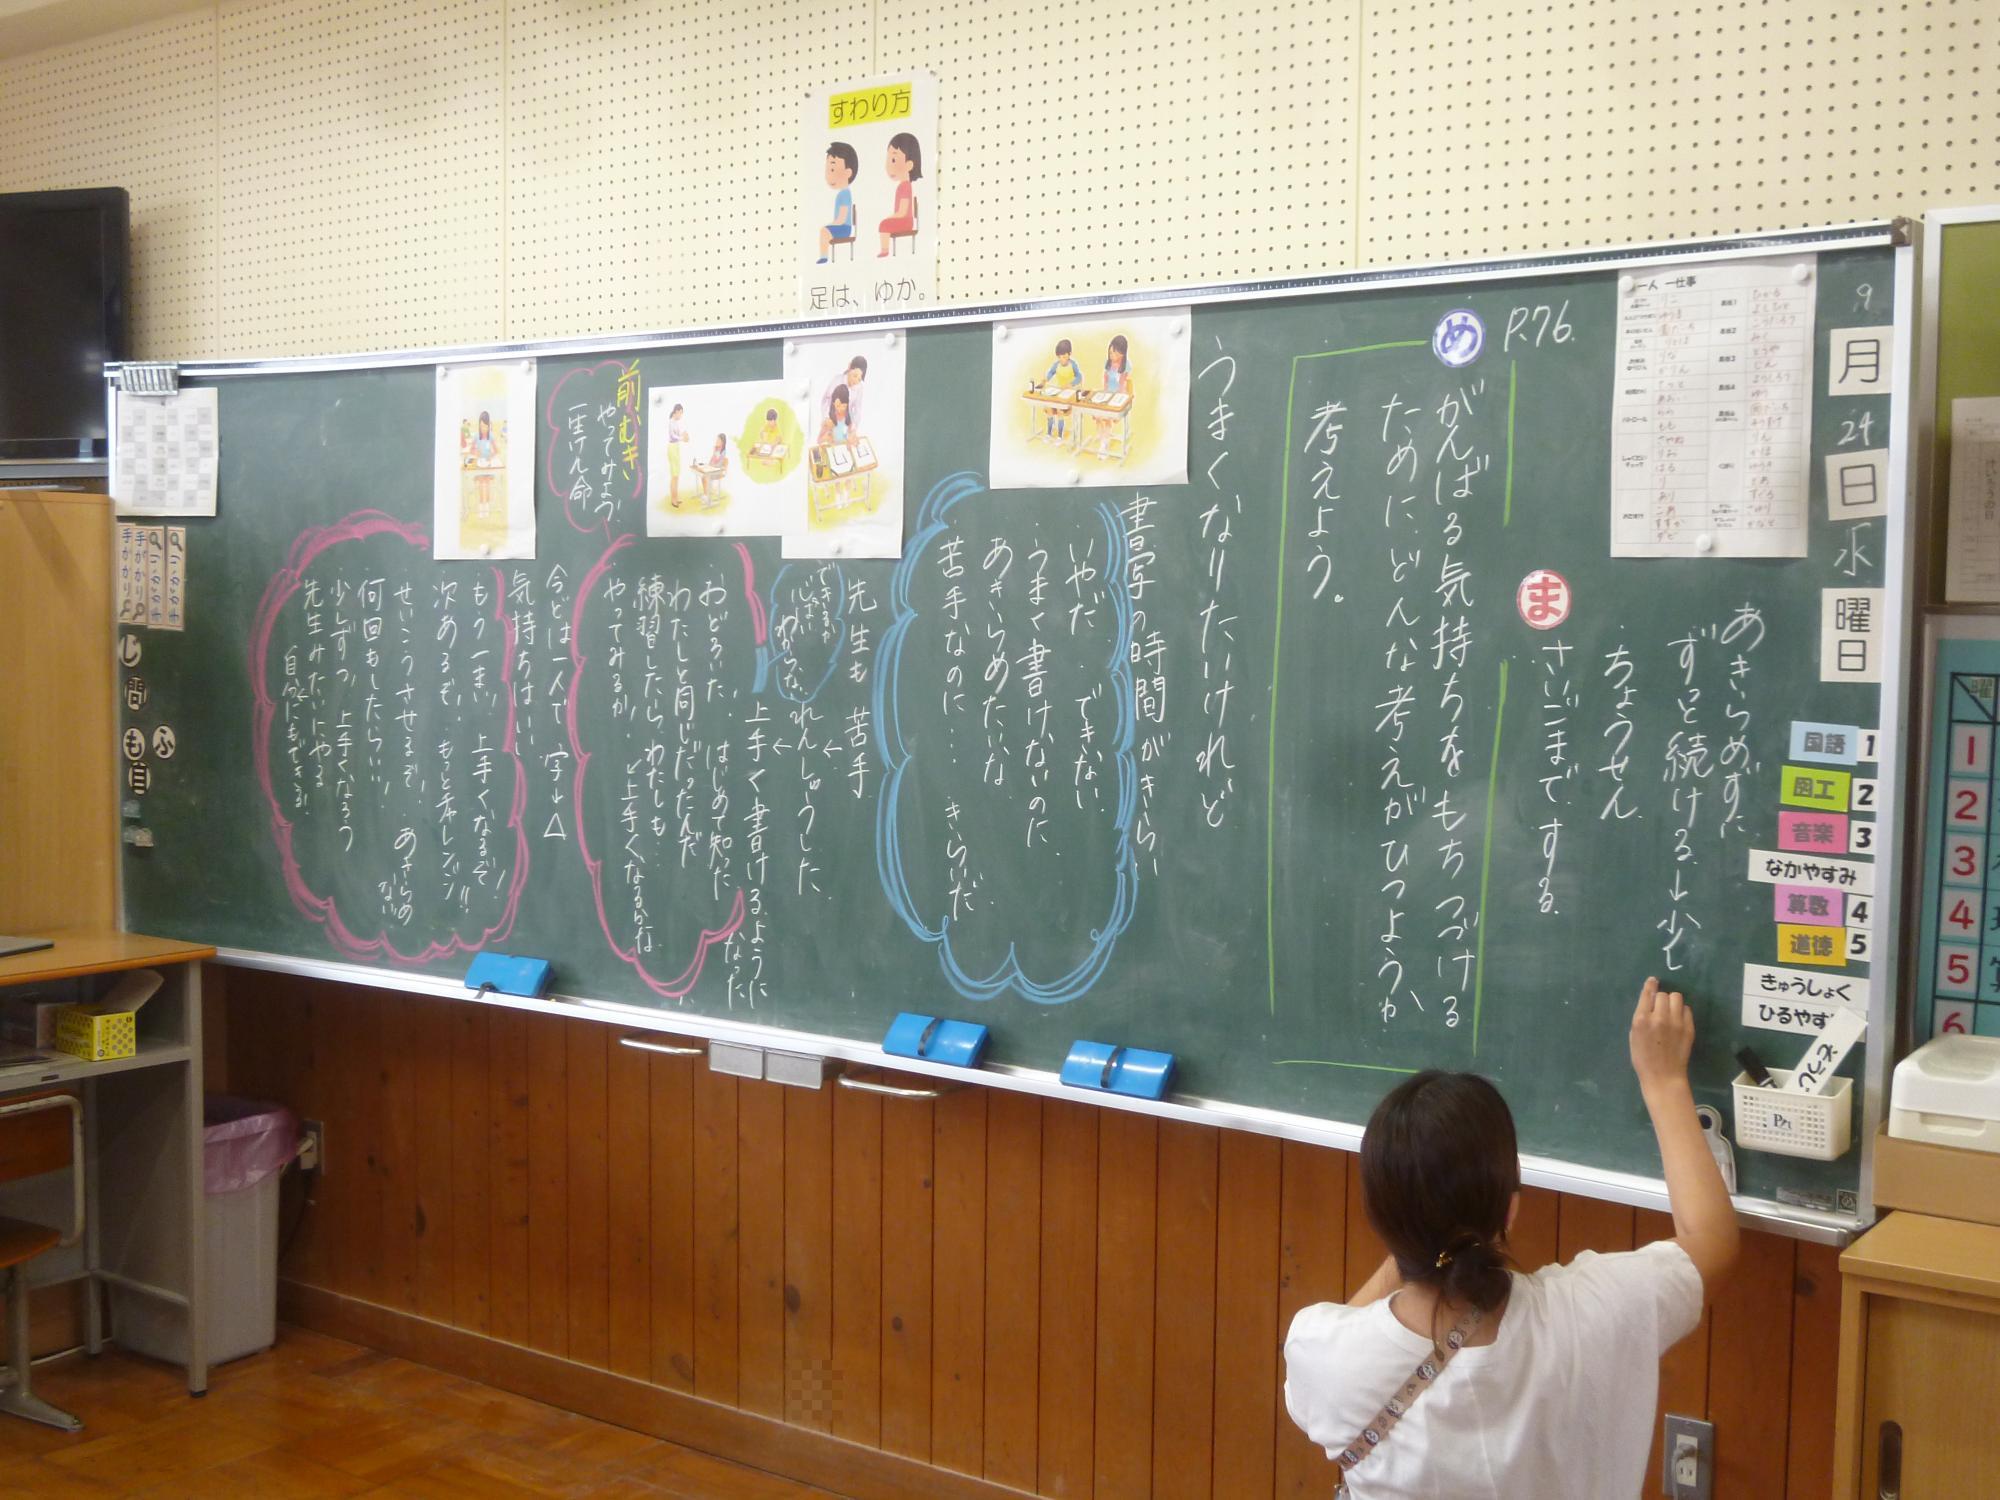 すわり方
足は、ゆか。
9
月
24
日
水
曜
日
国語 1
図工 2
音楽 3
なかやすみ
算数 4
道徳 5
きゅうしょく
ひるやす
そうじ
一人一仕事
P.76.
め
がんばる気持ちをもちつづける
ために、どんな考えがひつようか、
考えよう。
ま
さいごまで、する。
・ちょうせん
あきらめずに
ずっと続ける→少し
うまくなりたいけれど
書写の時間がきらい
・いやだ ・できない
・うまく書けないのに
・あきらめたいな
・苦手なのに… きらいだ
先生も 苦手
できるか
心ぱい
わからない
れんしゅうした
上手く書けるように
なった
・おどろいた。はじめて知った
・わたしと同じだったんだ
・練習したら、わたしも…
・やってみるか!
上手くなるかな
前むき
やってみよう!
一生けん命
今どは一人で 字→△
気持ちはいい
もう一まい! 上手くなるぞ!
次あるぞ!・もっとチャレンジ!!
せいこうさせるぞ! あきらめ
ない
何回もしたらいい!
少しずつ、上手くなろう
先生みたいにやる
自分にもできる!
手がかり
手がかり
手がかり
手がかり
じ
問
も
ふ
目
1
2
3
4
5
6